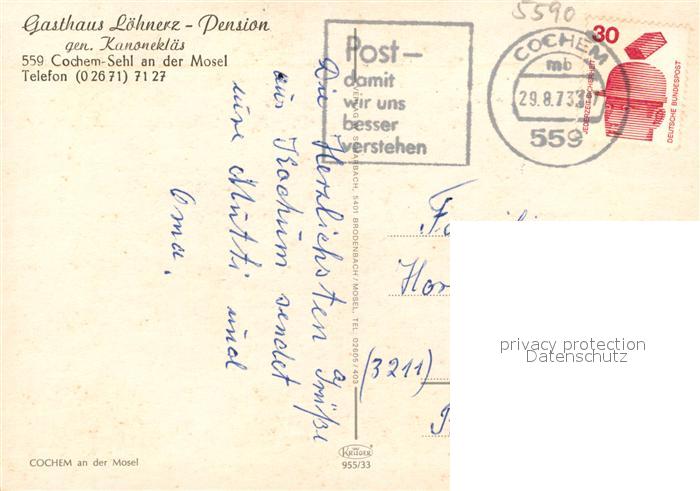 Gasthaus Löhnerz - Pension
gen. Kanonektäs
559 Cochem-Sehl an der Mosel
Telefon (0 26 71) 71 27
5590
Post–
damit
wir uns
besser
verstehen
COCHEM
mb
29.8.73
559
30
JEDERZEIT SICHERHEIT
DEUTSCHE BUNDESPOST
Die Herzlichsten Grüße
aus Kochum sendet
eure Mutti und
Oma.
5401 BRODENBACH/MOSEL, TEL. 02605/403
(3211)
privacy protection
Datenschutz
COCHEM an der Mosel
KRÜGER
955/33